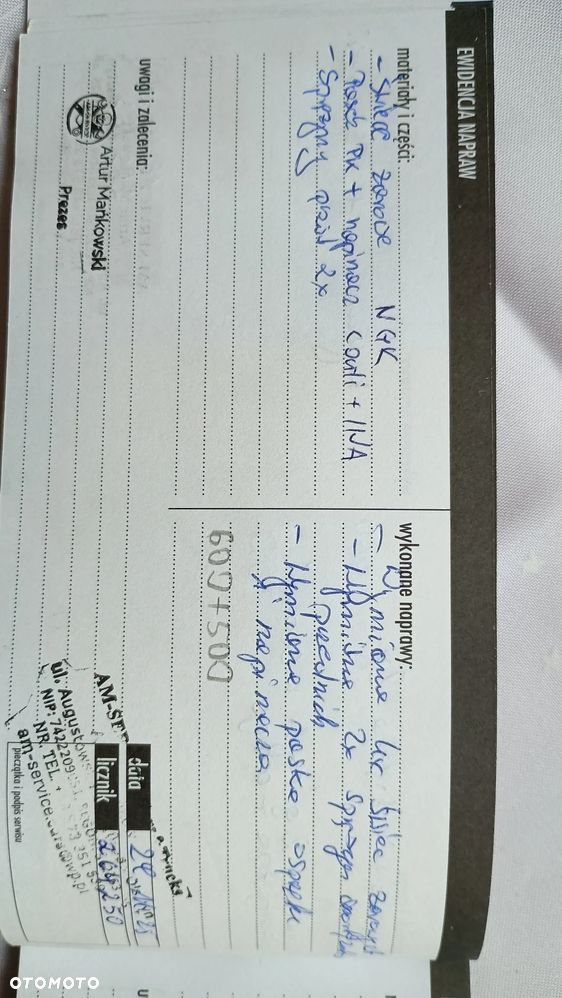 EWIDENCJA NAPRAW
materiały i części:
- Świece żarowe NGK
- Pasek PK + napinacz Conti + INA
- Sprężyny przód 2x
uwagi i zalecenia:
Artur Mańkowski
Prezes
wykonane naprawy:
- Wymiana świec
- Wymiana 2x sprężyn
przednich
- Wymiana paska osprzętu
i napinacza
600+500
data
licznik
AM-SER
ul. Augustows
NIP: 7422209
NR. TEL. +
am-service
wp.pl
pieczątka i podpis serwisu
OTOMOTO